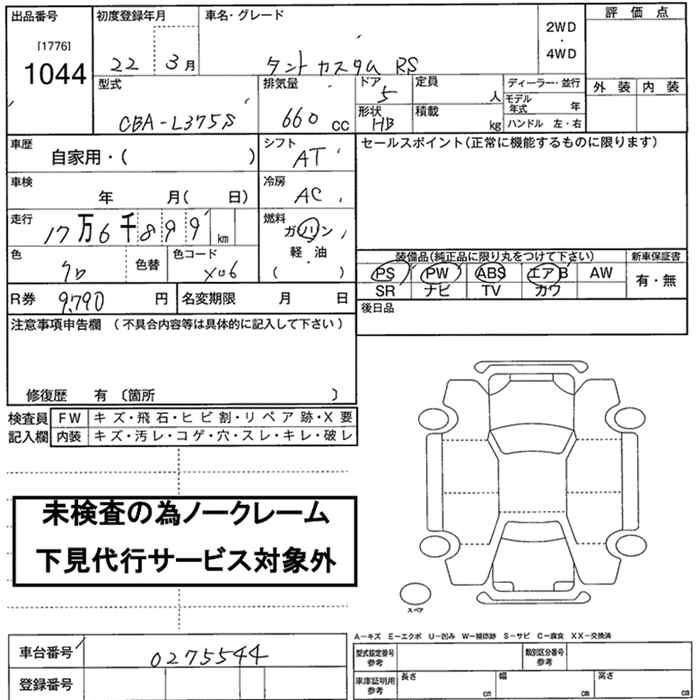 出品番号
[1776]
1044
初度登録年月
22 3月
車名・グレード
タントカスタム RS
2WD
・
4WD
評価点
外装 内装
型式
CBA-L375S
排気量
660 cc
ドア
5
形状
HB
定員
人
積載
kg
ディーラー・並行
モデル年式 年
ハンドル 左・右
車歴
自家用・( )
シフト
AT
セールスポイント(正常に機能するものに限ります)
車検
年 月( 日)
冷房
AC
走行
17万6千899 km
燃料
ガソリン
軽・油
( )
色
クロ
色替
色コード
X06
装備品(純正品に限り丸をつけて下さい)
PS PW ABS エアB AW
SR ナビ TV カワ
新車保証書
有・無
R券 9,790 円
名変期限 月 日
後日品
注意事項申告欄 (不具合内容等は具体的に記入して下さい)
修復歴 有 〔箇所 〕
検査員記入欄
FW キズ・飛石・ヒビ割・リペア跡・X要
内装 キズ・汚レ・コゲ・穴・スレ・キレ・破レ
未検査の為ノークレーム
下見代行サービス対象外
スペア
A-キズ E-エクボ U-凹み W-補修跡 S-サビ C-腐食 XX-交換済
車台番号 0275544
登録番号
型式指定番号
参考
類別区分番号
参考
車庫証明用
参考
長さ cm
幅 cm
高さ cm